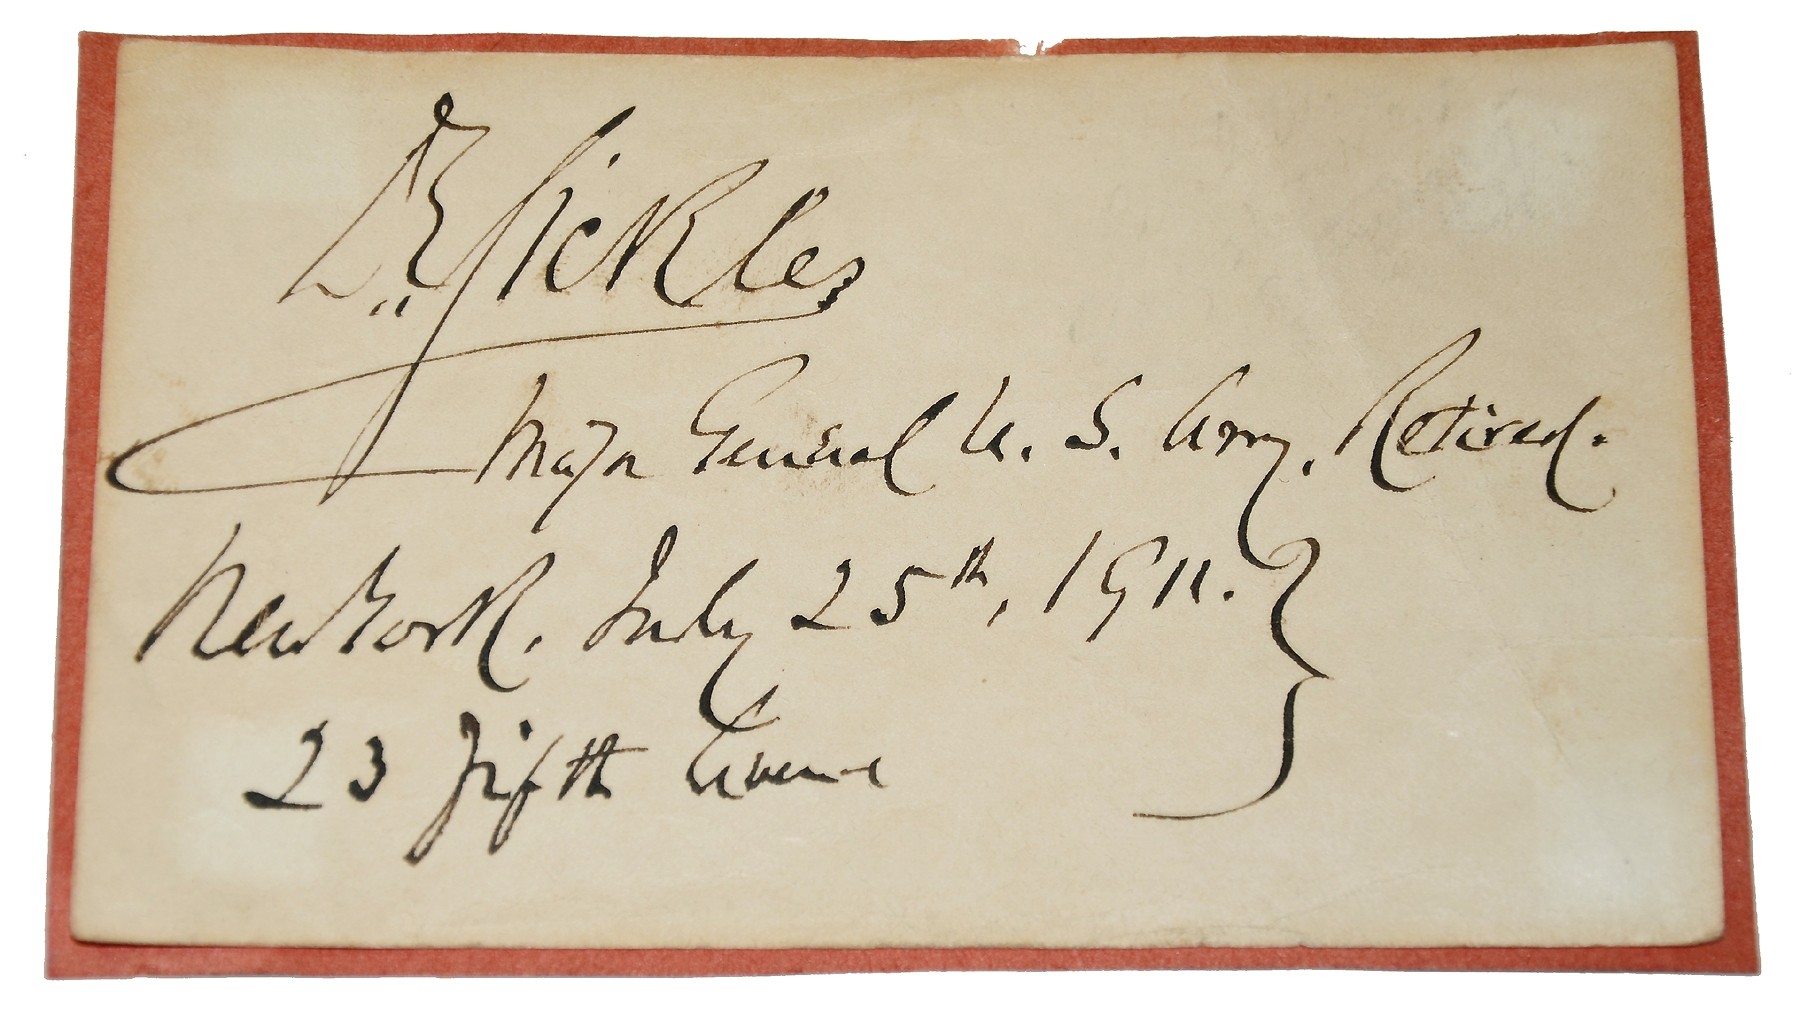 D. E. Sickles
Major General U. S. Army, Retired.
New York, July 25th, 1911.
23 Fifth Avenue